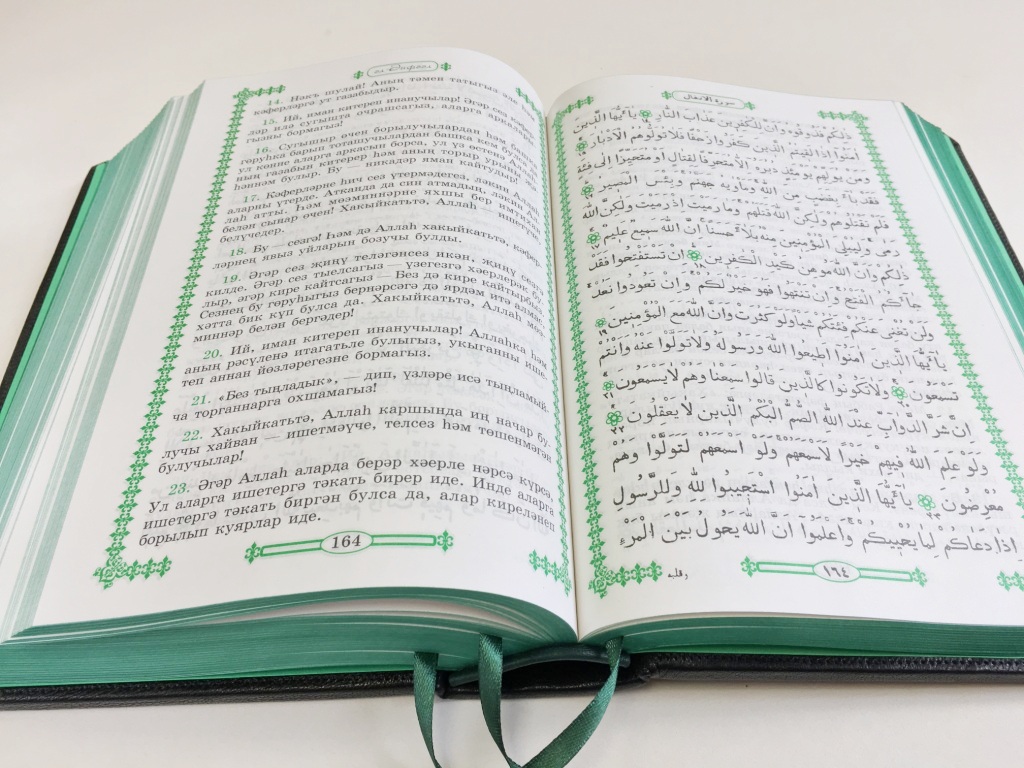 әл-Әнфәл
14. Нәкъ шулай! Аның тәмен татыгыз әле
кәферләргә ут газабыдыр.
15. Ий, иман китереп инанучылар! Әгәр сез кәфер-
ләр илә сугышта очрашсагыз, аларга аркалары-
гызны бормагыз!
16. Сугышыр өчен борылучылардан һәм башка
төркемгә барып тоташучылардан башка кем булса,
ул көнне аларга аркасын борса, ул үз өстенә Аллаһ-
ның газабын китерер һәм аның торыр урыны җә-
һәннәм булыр. Бу — никадәр яман кайтудыр!
17. Кәферләрне һич сез үтермәдегез, ләкин Аллаһ
аларны үтерде. Атканда да син атмадың, ләкин Ал-
лаһ атты. Һәм мөэминнәрне яхшы бер имтихан
белән сынар өчен! Хакыйкатьтә, Аллаһ — ишетүче,
белүчедер.
18. Бу — сезгә! Һәм дә Аллаһ хакыйкатьтә, кәфер-
ләрнең явыз уйларын бозучы булды.
19. Әгәр сез җиңү теләгәнсез икән, җиңү сезгә
килде. Әгәр сез тыелсагыз — үзегезгә хәерлерәк бу-
лыр, әгәр кире кайтсагыз — Без дә кире кайтырбыз.
Сезнең бу төркемегез бернәрсәгә дә ярдәм итә алмас,
хәтта бик күп булса да. Хакыйкатьтә, Аллаһ мөэ-
миннәр белән бергәдер!
20. Ий, иман китереп инанучылар! Аллаһка һәм
аның рәсүленә итагатьле булыгыз, укыганны ише-
теп аннан йөзләрегезне бормагыз.
21. «Без тыңладык», — дип, үзләре исә тыңламый-
ча торганнарга охшамагыз!
22. Хакыйкатьтә, Аллаһ каршында иң начар бу-
лучы хайван — ишетмәүче, телсез һәм төшенмәгән
булучылар!
23. Әгәр Аллаһ аларда берәр хәерле нәрсә күрсә,
Ул аларга ишетергә тәкать бирер иде. Инде аларга
ишетергә тәкать биргән булса да, алар киреләнеп
борылып куярлар иде.
164
سورة الانفال
ذٰلِكُمْ فَذُوقُوهُ وَاَنَّ لِلْكٰفِرِينَ عَذَابَ النَّارِ يَآ اَيُّهَا الَّذِينَ
اٰمَنُوا اِذَا لَقِيتُمُ الَّذِينَ كَفَرُوا زَحْفًا فَلَا تُوَلُّوهُمُ الْاَدْبَارَ
وَمَنْ يُوَلِّهِمْ يَوْمَئِذٍ دُبُرَهُ اِلَّا مُتَحَرِّفًا لِقِتَالٍ اَوْ مُتَحَيِّزًا اِلٰى فِئَةٍ
فَقَدْ بَآءَ بِغَضَبٍ مِنَ اللّٰهِ وَمَأْوٰيهُ جَهَنَّمُ وَبِئْسَ الْمَصِيرُ
فَلَمْ تَقْتُلُوهُمْ وَلٰكِنَّ اللّٰهَ قَتَلَهُمْ وَمَا رَمَيْتَ اِذْ رَمَيْتَ وَلٰكِنَّ اللّٰهَ
رَمٰى وَلِيُبْلِىَ الْمُؤْمِنِينَ مِنْهُ بَلَآءً حَسَنًا اِنَّ اللّٰهَ سَمِيعٌ عَلِيمٌ ١٧
ذٰلِكُمْ وَاَنَّ اللّٰهَ مُوهِنُ كَيْدِ الْكٰفِرِينَ ١٨ اِنْ تَسْتَفْتِحُوا فَقَدْ
جَآءَكُمُ الْفَتْحُ وَاِنْ تَنْتَهُوا فَهُوَ خَيْرٌ لَكُمْ وَاِنْ تَعُودُوا نَعُدْ
وَلَنْ تُغْنِىَ عَنْكُمْ فِئَتُكُمْ شَيْئًا وَلَوْ كَثُرَتْ وَاَنَّ اللّٰهَ مَعَ الْمُؤْمِنِينَ ١٩
يَآ اَيُّهَا الَّذِينَ اٰمَنُوا اَطِيعُوا اللّٰهَ وَرَسُولَهُ وَلَا تَوَلَّوْا عَنْهُ وَاَنْتُمْ
تَسْمَعُونَ وَلَا تَكُونُوا كَالَّذِينَ قَالُوا سَمِعْنَا وَهُمْ لَا يَسْمَعُونَ ٢١
اِنَّ شَرَّ الدَّوَآبِّ عِنْدَ اللّٰهِ الصُّمُّ الْبُكْمُ الَّذِينَ لَا يَعْقِلُونَ ٢٢
وَلَوْ عَلِمَ اللّٰهُ فِيهِمْ خَيْرًا لَاَسْمَعَهُمْ وَلَوْ اَسْمَعَهُمْ لَتَوَلَّوْا وَهُمْ
مُعْرِضُونَ ٢٣ يَآ اَيُّهَا الَّذِينَ اٰمَنُوا اسْتَجِيبُوا لِلّٰهِ وَلِلرَّسُولِ
اِذَا دَعَاكُمْ لِمَا يُحْيِيكُمْ وَاعْلَمُوا اَنَّ اللّٰهَ يَحُولُ بَيْنَ الْمَرْءِ
وقلبه
١٦٤